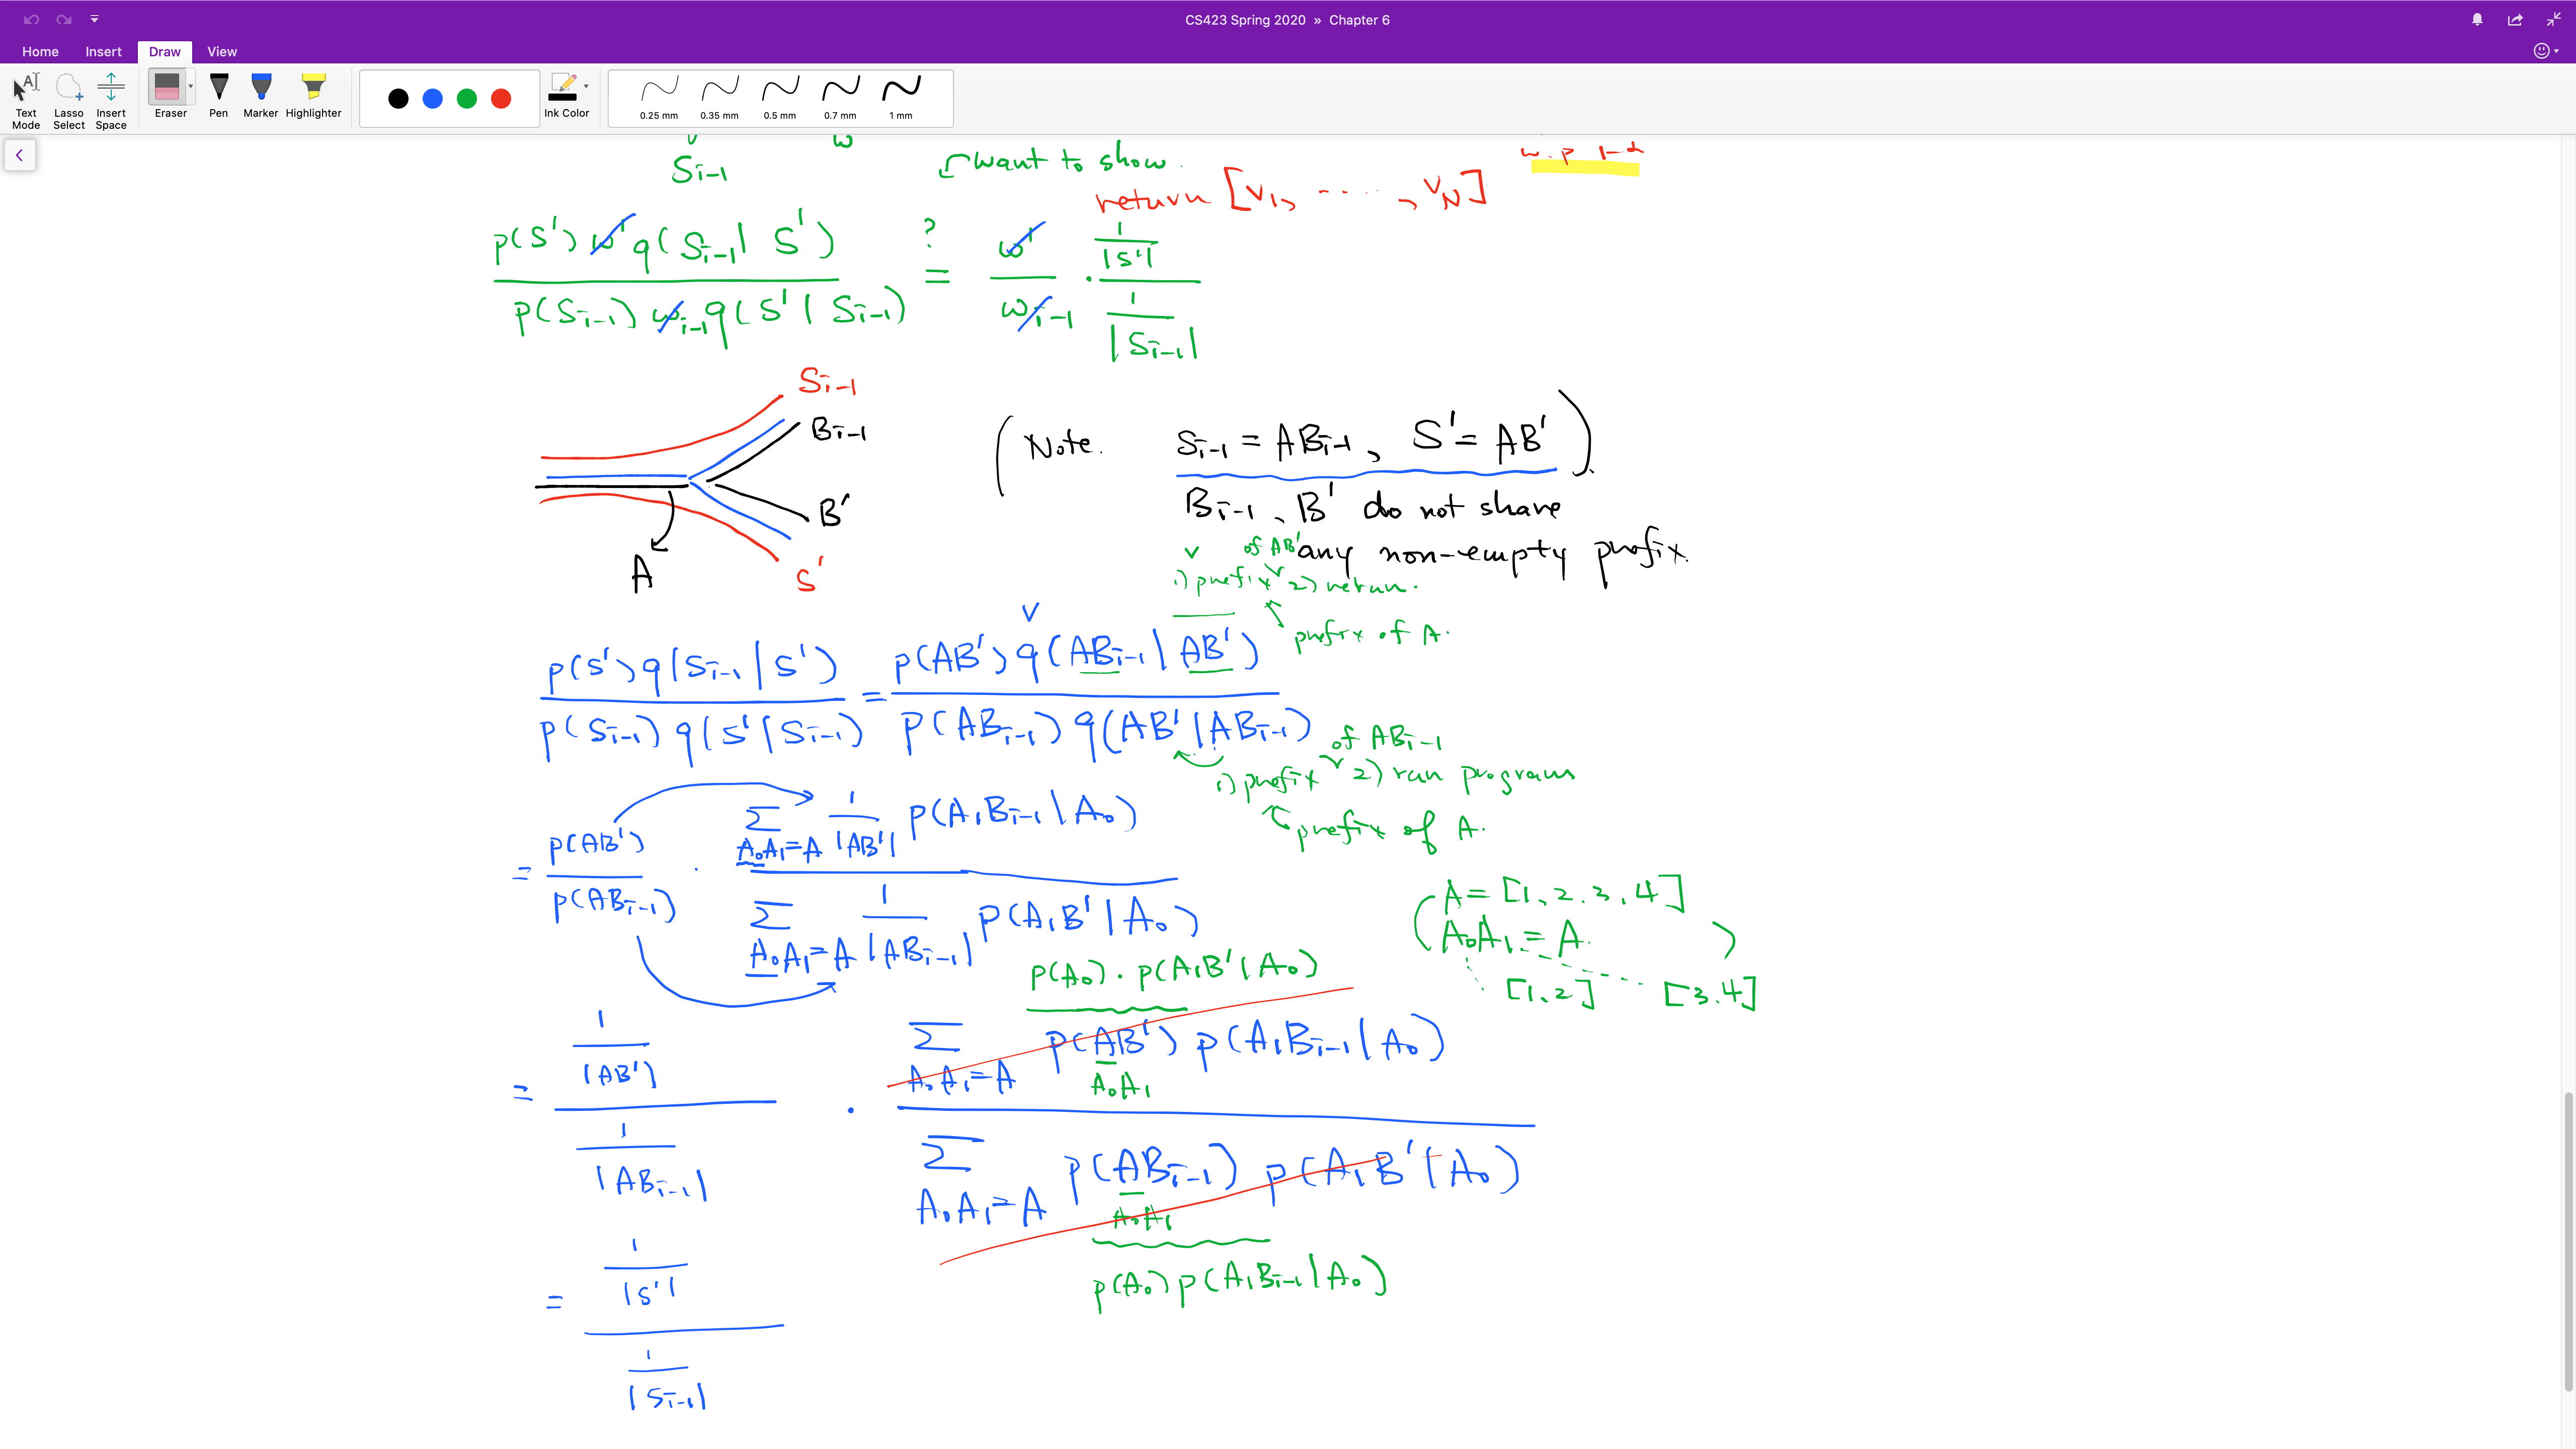 CS423 Spring 2020 » Chapter 6
Home Insert Draw View
Text Mode Lasso Select Insert Space Eraser Pen Marker Highlighter Ink Color 0.25 mm 0.35 mm 0.5 mm 0.7 mm 1 mm
S_{i-1} ω
want to show.
w.p 1-α
return [v_1, ...., v_N]
p(S') ω' q(S_{i-1} | S') / p(S_{i-1}) ω_{i-1} q(S' | S_{i-1}) ?= ω' / ω_{i-1} · (1/|S'|) / (1/|S_{i-1}|)
S_{i-1}
B_{i-1}
B'
A
S'
(Note. S_{i-1} = AB_{i-1}, S' = AB')
B_{i-1}, B' do not share
any non-empty prefix.
of AB'
1) prefix 2) rerun.
prefix of A.
p(S') q(S_{i-1} | S') / p(S_{i-1}) q(S' | S_{i-1}) = p(AB') q(AB_{i-1} | AB') / p(AB_{i-1}) q(AB' | AB_{i-1})
of AB_{i-1}
1) prefix 2) run program
prefix of A.
= p(AB') / p(AB_{i-1}) · Σ_{A_0A_1=A} 1/|AB'| p(A_1B_{i-1} | A_0) / Σ_{A_0A_1=A} 1/|AB_{i-1}| p(A_1B' | A_0)
(A = [1, 2, 3, 4]
A_0A_1 = A.)
[1, 2] [3, 4]
p(A_0) · p(A_1B' | A_0)
= (1/|AB'|) / (1/|AB_{i-1}|) · Σ_{A_0A_1=A} p(AB') p(A_1B_{i-1} | A_0) / Σ_{A_0A_1=A} p(AB_{i-1}) p(A_1B' | A_0)
A_0A_1
A_0A_1
p(A_0) p(A_1B_{i-1} | A_0)
= (1/|S'|) / (1/|S_{i-1}|)